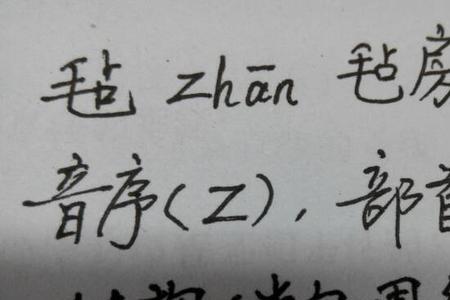 毡 zhān 毡房
音序(Z),部首